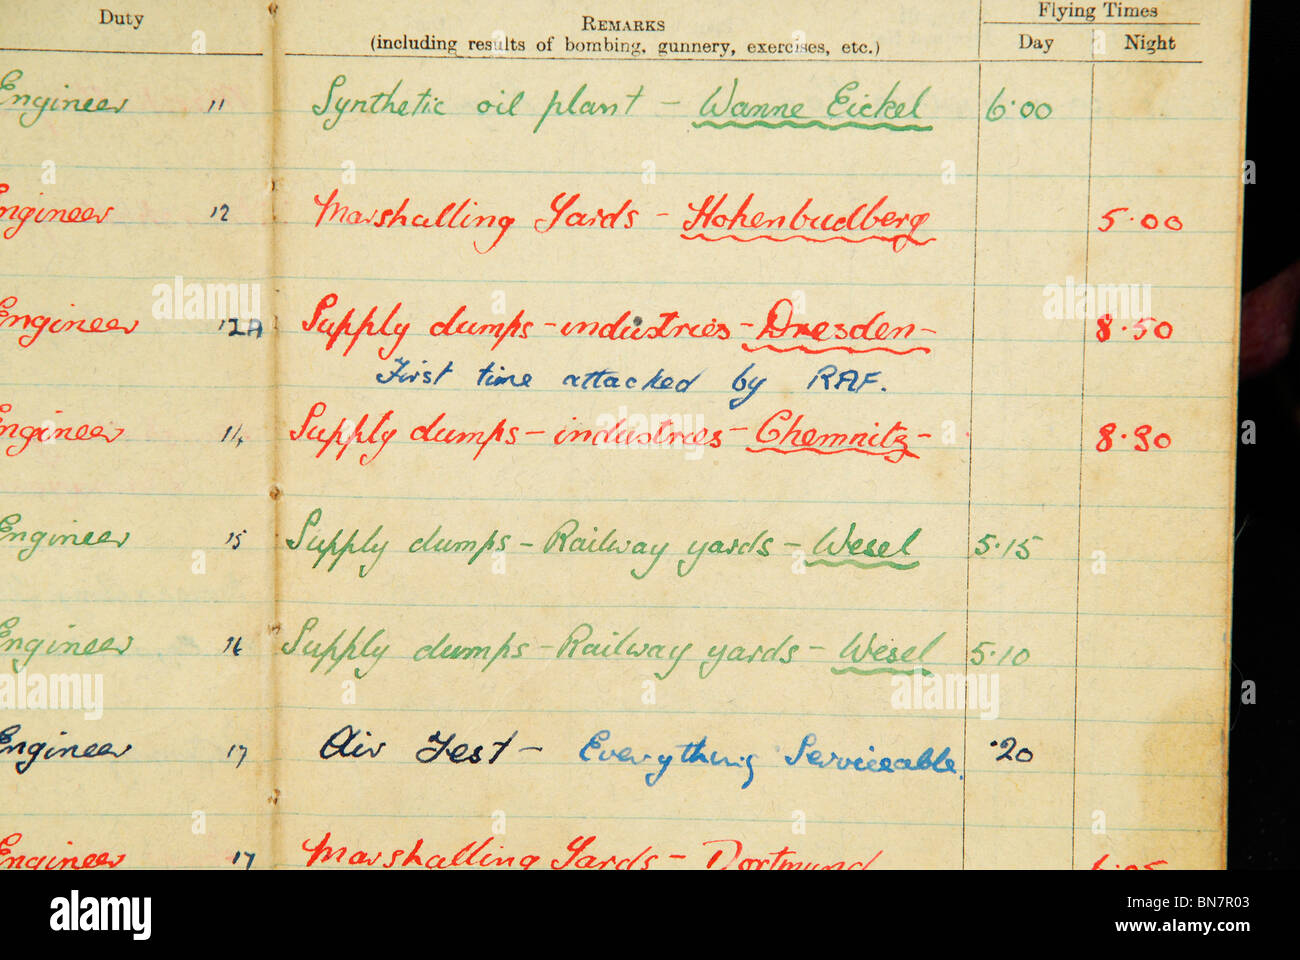 Duty
REMARKS
(including results of bombing, gunnery, exercises, etc.)
Flying Times
Day Night
Engineer 11 Synthetic oil plant - Wanne Eickel 6·00
Engineer 12 Marshalling Yards - Hohenbudberg 5·00
Engineer 12A Supply dumps - industries - Dresden - 8·50
First time attacked by RAF.
Engineer 14 Supply dumps - industries - Chemnitz - 8·30
Engineer 15 Supply dumps - Railway yards - Wesel 5·15
Engineer 16 Supply dumps - Railway yards - Wesel 5·10
Engineer 17 Air Test - Everything Serviceable. ·20
Engineer 17 Marshalling Yards - Dortmund
alamy
Image ID: BN7R03
www.alamy.com